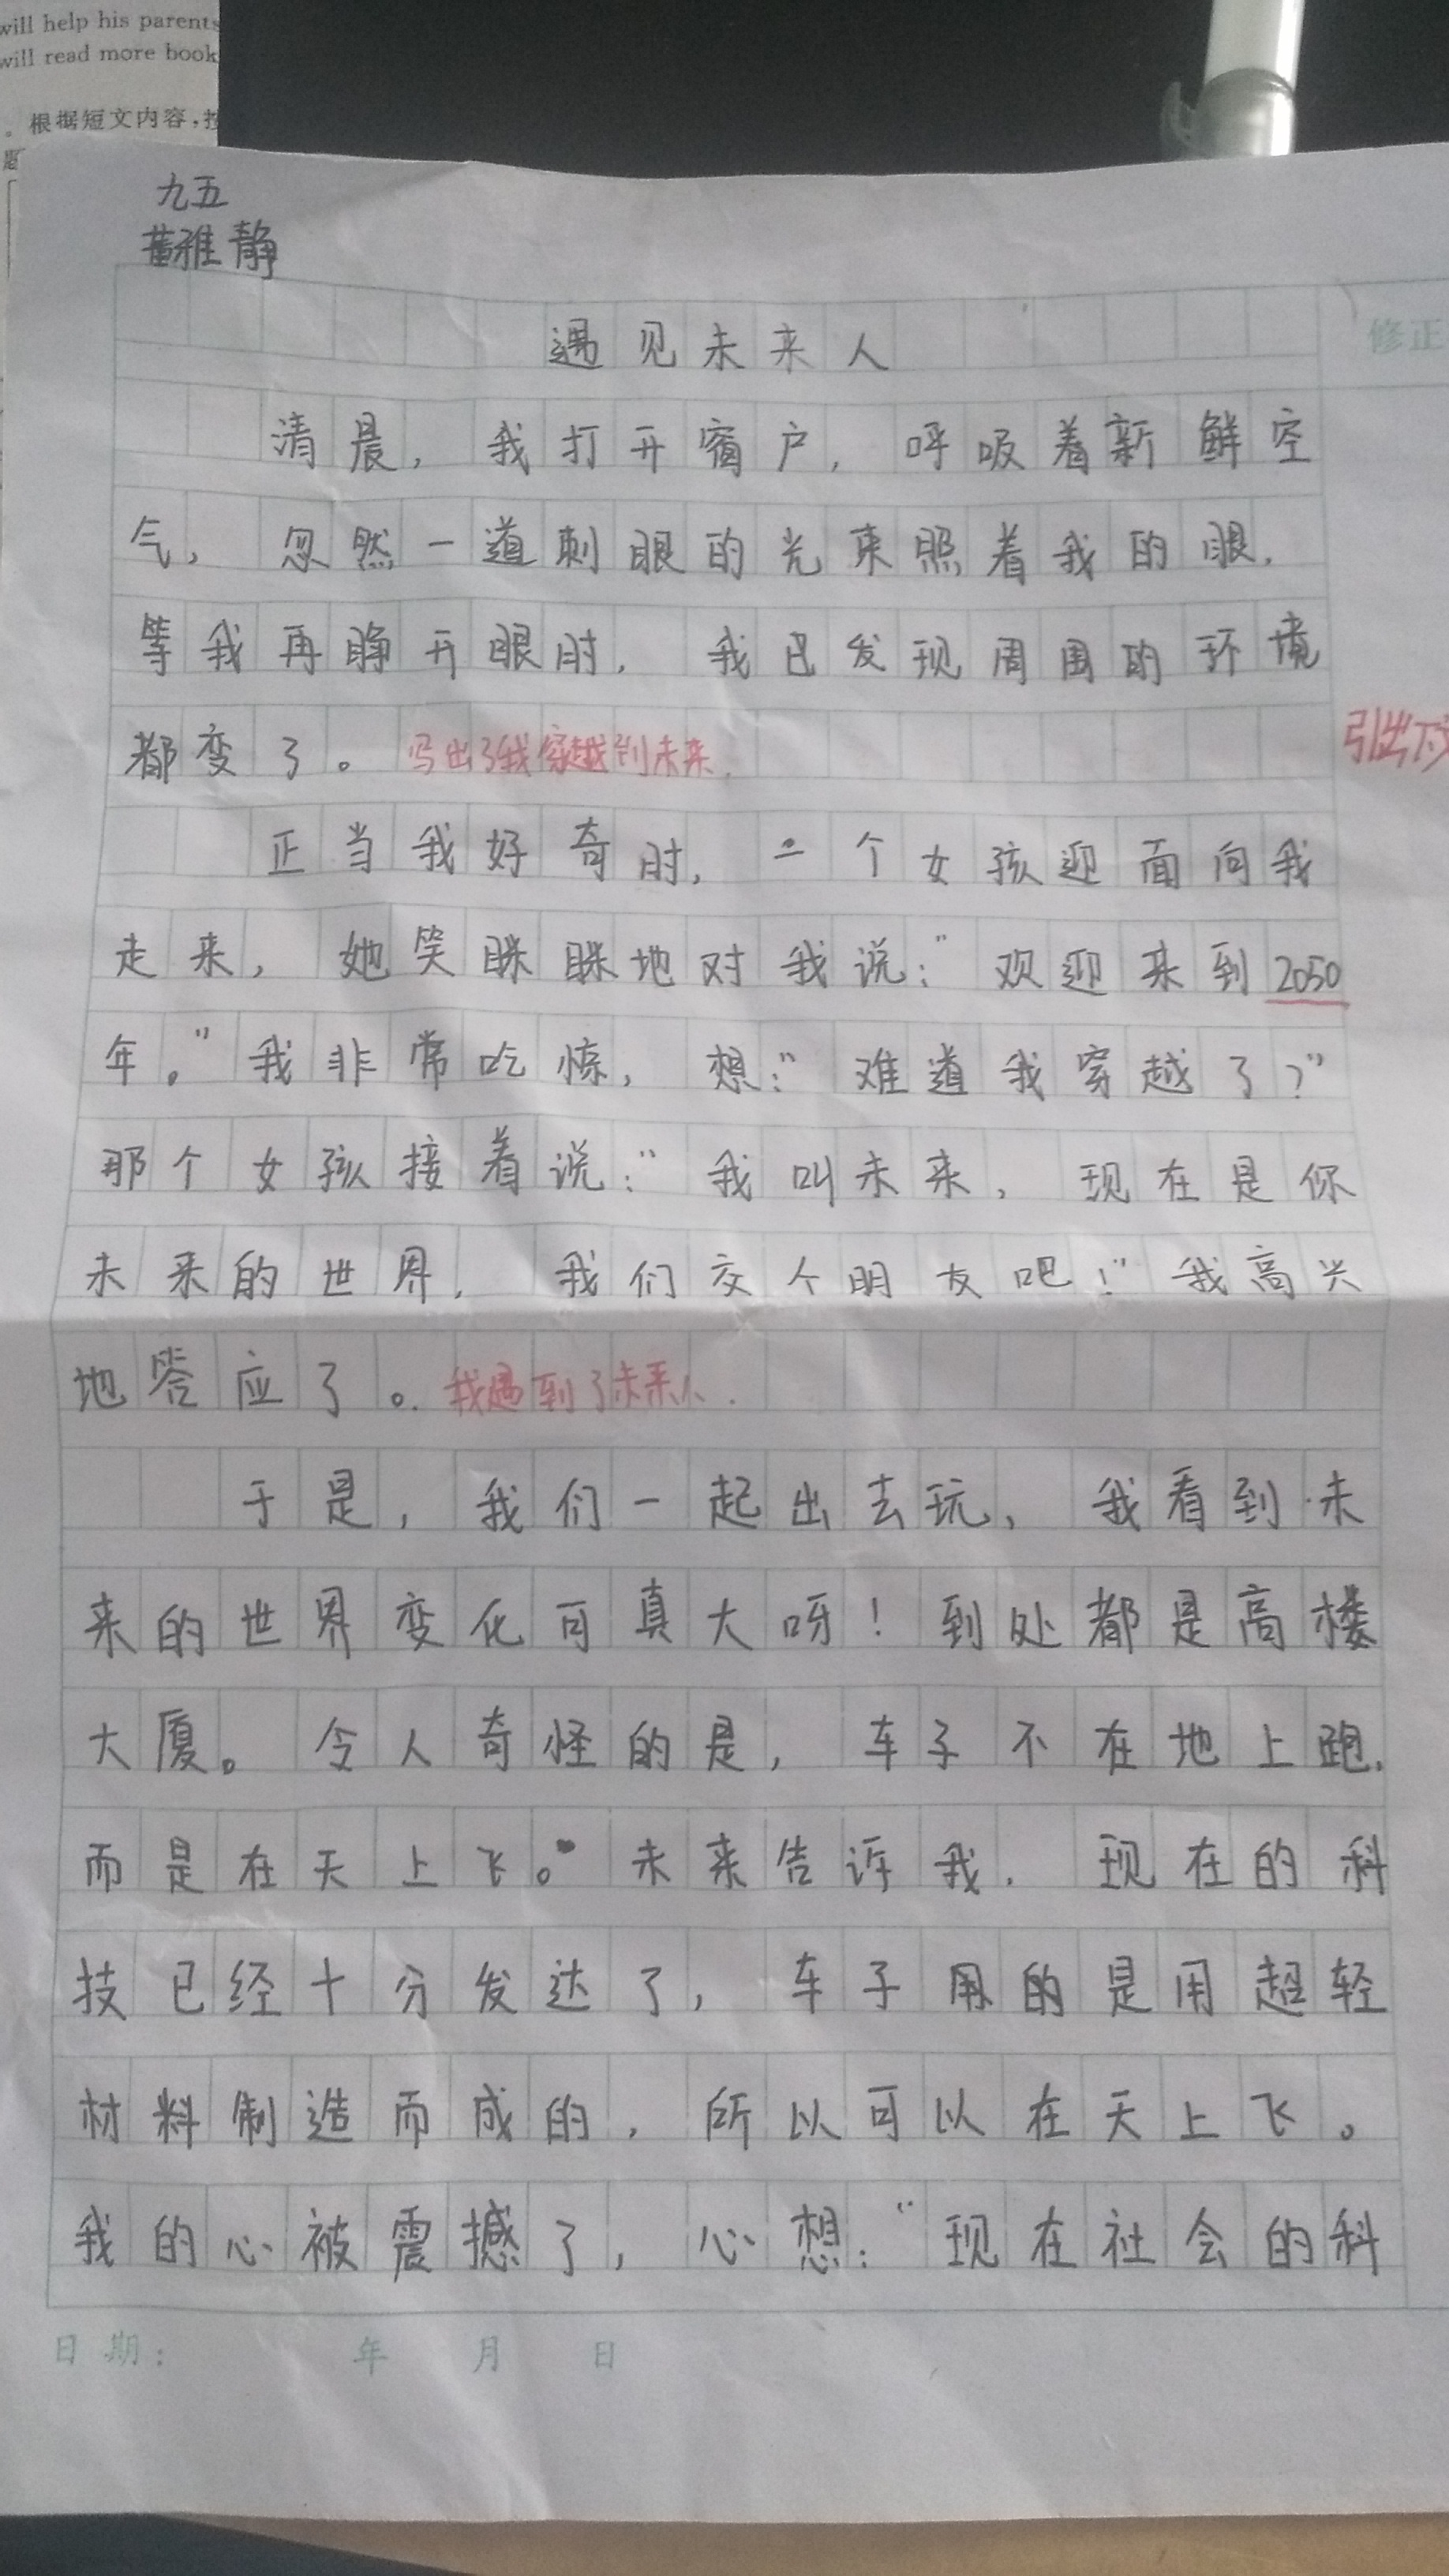 will help his parents
will read more book
。根据短文内容,按
题
九五
董雅静
修正
遇见未来人
清晨,我打开窗户,呼吸着新鲜空
气,忽然一道刺眼的光束照着我的眼,
等我再睁开眼时,我已发现周围的环境
都变了。写出了我穿越到未来.
引出下文
正当我好奇时,一个女孩迎面向我
走来,她笑眯眯地对我说:"欢迎来到2050
年。"我非常吃惊,想:"难道我穿越了?"
那个女孩接着说:"我叫未来,现在是你
未来的世界,我们交个朋友吧!"我高兴
地答应了。我遇到了未来人.
于是,我们一起出去玩,我看到未
来的世界变化可真大呀!到处都是高楼
大厦。令人奇怪的是,车子不在地上跑,
而是在天上飞。未来告诉我,现在的科
技已经十分发达了,车子用的是用超轻
材料制造而成的,所以可以在天上飞。
我的心被震撼了,心想:"现在社会的科
日期: 年 月 日